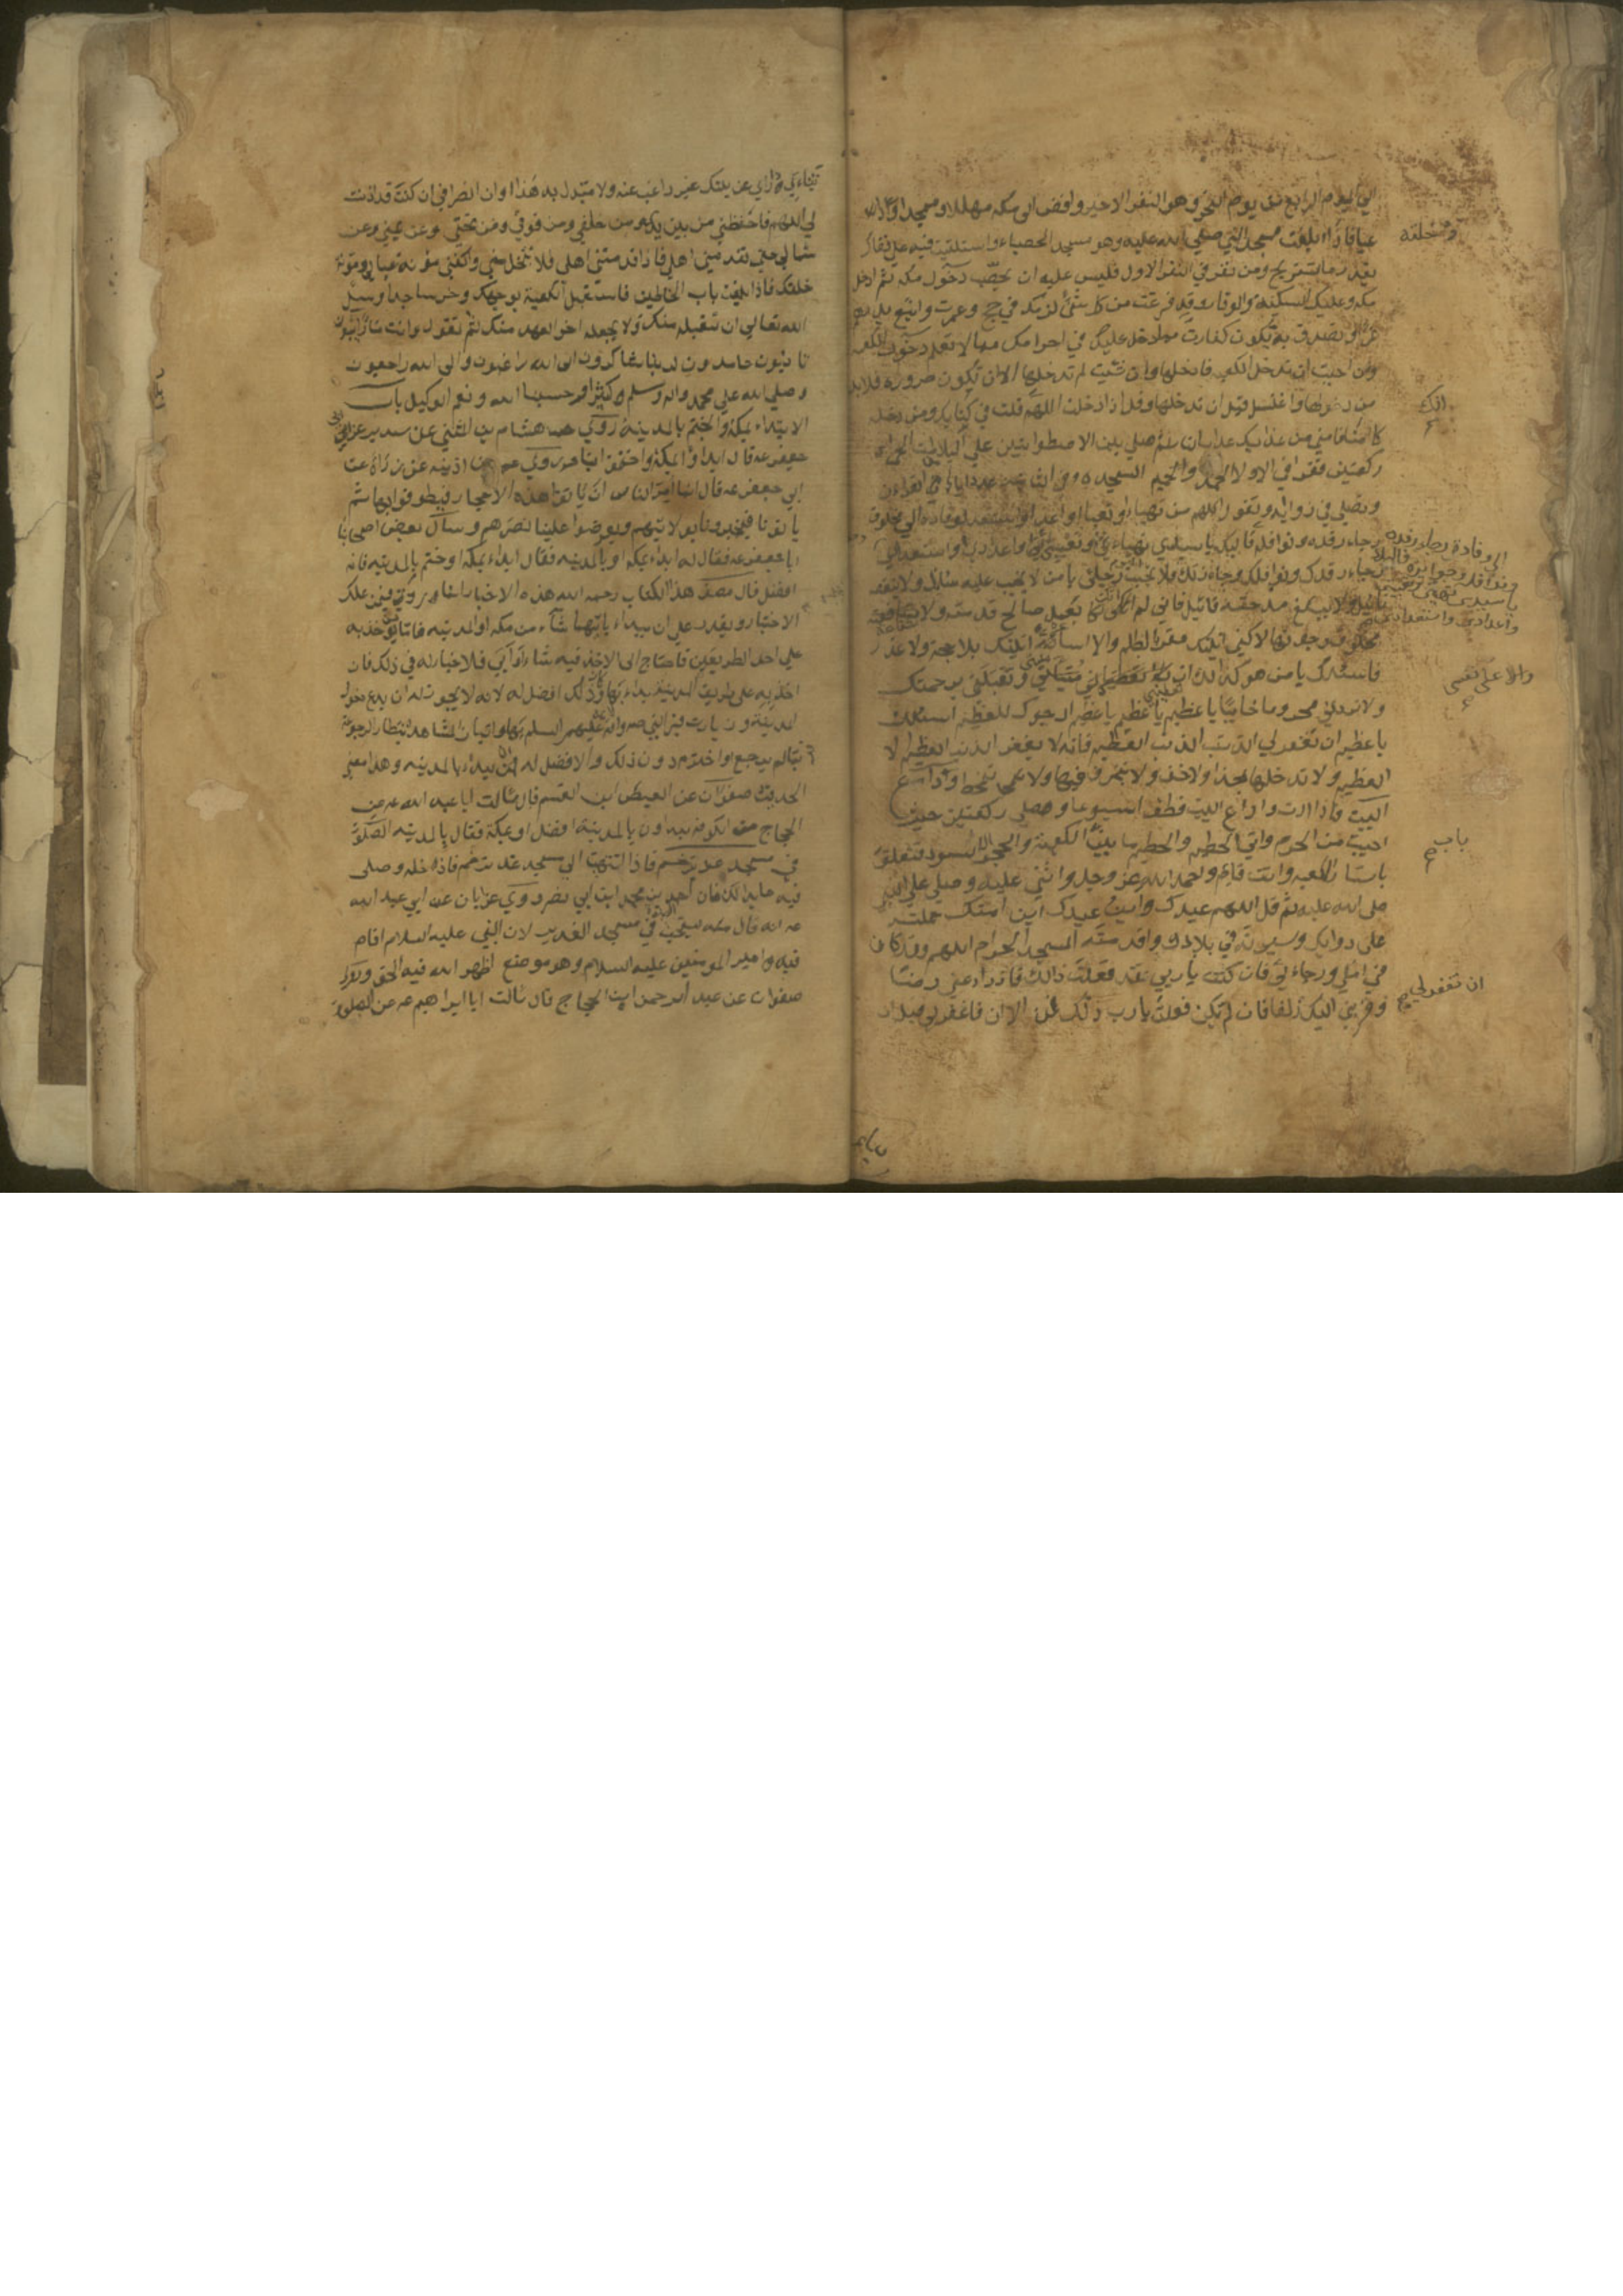 الي اليوم الرابع من يوم النحر وهو النفر الاخير وافض الي مكه مهللا وممجدا وداعيا
فاذا بلغت مسجد النبي صلي الله عليه وهو مسجد الحصباء واستلقيت فيه علي قفاك
بقدر ما تستريح ومن نفر في النفر الاول فليس عليه ان يحصب دخول مكه ثم ادخل
مكه وعليك السكينة والوقار وقد فرغت من كل شئ لزمك في حج وعمرت وابتع بدرهم
تمرا وتصدق به يكون كفارت لما دخل عليك في احرامك مما لا تعلم دخول الكعبه
وان احببت ان تدخل الكعبه فادخلها وان شئت لم تدخلها الا ان تكون صروره فلا بد
من دخولها واغتسل قبل ان تدخلها وقل اذا دخلت اللهم قلت في كتابك ومن دخله
كان امنا فامني من عذابك عذاب النار ثم صلي بين الاسطوانتين علي البلاطت الحمراء
ركعتين فتقرا في الاولا الحمد وحاميم السجده وفي الثانيه عدد اياتها من القراءن
وتصلي في زواياه وتقول اللهم من تهياء او تعباء او اعد او استعد لوفادة الي مخلوق
رجاء رفده ونوافله فاليك يا سيدي تهياءتي وتعبيتي واعدادي واستعدادي
رجاء رفدك ونوافلك وجائزتك فلا تخيب رجائي يا من لا يخيب عليه سائل ولا ينقصه
نايل ولا يبلغ مدحته قائل فاني لم اتك بعمل صالح قدمته ولا شفاعة
مخلوق رجوتها لاكني اتيتك مقرا بالظلم والاساءة اتيتك بلا حجة ولا عذر
فاسئلك يا من هو كذالك ان تعطيني مسئلتي وتقبلني برحمتك
ولا تردني محروما خائبا يا عظيم يا عظيم يا عظيم ارجوك للعظيم اسئلك
يا عظيم ان تغفر لي الذنب الذنب العظيم فانه لا يغفر الذنب العظيم الا
العظيم ولا تدخلها بحذا ولا خف ولا تبزق فيها ولا تمخط وداع
البيت فاذا اردت وداع البيت فطف اسبوعا وصلي ركعتين حيث
احببت من الحرم وات الحطيم والحطيم ما بين الكعبة والحجر الاسود فتعلق
باستار الكعبه وانت قائم واحمد الله عز وجل واثني عليه وصلي علي النبي
صلي الله عليه ثم قل اللهم عبدك وابن عبدك ابن امتك حملته
علي دوابك وسيرته في بلادك واقدمته المسجد الحرام اللهم وقد كان
في املي ورجاءي فان كنت يا ربي قد فعلت ذالك فازداد عني رضا
وقربني اليك زلفا فان لم تكن فعلت يا رب ذلك فمن الان فاغفر لي قبل ان
ومخلقه
انك
الي وفادة رجاء رفده
ونوافله وجوايزه فاليك
يا سيدي تهيئتي وتعبيتي
واعدادي واستعدادي
والا علي نفسي
باب
ان تغفر لي
تناءي داري عن بيتك غير راغب عنه ولا مستبدل به هذا اوان انصرافي ان كنت قد اذنت
لي اللهم فاحفظني من بين يدي ومن خلفي ومن فوقي ومن تحتي وعن يميني وعن
شمالي حتي تقدمني اهلي فاذا اقدمتني اهلي فلا تتخل مني واكفني مؤنة عيالي ومؤنة
خلقك فاذا بلغت باب الحناطين فاستقبل الكعبة بوجهك وخر ساجدا وسئل
الله تعالي ان تتقبله منك ولا يجعله اخر العهد منك ثم تقول وانت مار ائبون
تائبون حامدون لربنا شاكرون الي الله راغبون والي الله راجعون
وصلي الله علي محمد واله وسلم كثيرا وحسبنا الله ونعم الوكيل باب
الابتداء بمكة والختم بالمدينة روي هشام بن المثني عن سدير عن ابي
جعفر عه قال ابدؤا بمكة واختموا بنا وروي عمر بن اذينه عن زرارة عن
ابي جعفر عه قال انما امر الناس ان ياتوا هذه الاحجار فيطوفوا بها ثم
ياتونا فيخبرونا بولايتهم ويعرضوا علينا نصرهم وسال بعض اصحابنا
ابا جعفر عه فقال له ابداء بمكه او بالمدينه فقال ابداء بمكه واختم بالمدينه فانه
افضل قال مصنف هذا الكتاب رحمه الله هذه الاخبار انما وردت فيمن يملك
الاختيار ويقدر علي ان يبداء بايهما شاء من مكه او المدينه فاما من يوخذ به
علي احد الطريقين فاحتاج الي الاخذ فيه شاء او ابي فلا اختيار له في ذلك فان
اخذ به علي طريق المدينة بداء بها وكان ذلك افضل له لانه لا يجوز له ان يدع دخول
المدينة وزيارت قبر النبي صم والائمة عليهم السلم بها واتيان المشاهد انتظارا لرجوعة
فربما لم يرجع او اخترم دون ذلك والافضل له ان يبداء بالمدينه وهذا معني
الحديث صفوان عن العيص ابن القسم قال سالت ابا عبد الله عه عن
الحجاج من الكوفه يبداون بالمدينة افضل او بمكة فقال بالمدينه الصلوة
في مسجد غدير خم فاذا انتهيت الي مسجد غدير خم فادخله وصلي
فيه ما بدا لك فان احمد بن محمد ابن ابي نصر روي عن ابان عن ابي عبد الله
عه انه قال يستحب الصلوة في مسجد الغدير لان النبي عليه السلام اقام
فيه امير المومنين عليه السلام وهو موضع اظهر الله فيه الحق وروي
صفوان عن عبد الرحمن ابن الحجاج قال سالت ابا ابراهيم عه عن الصلوة